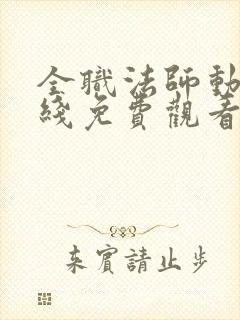 全職法師動
綫免費觀看
來賓請止步